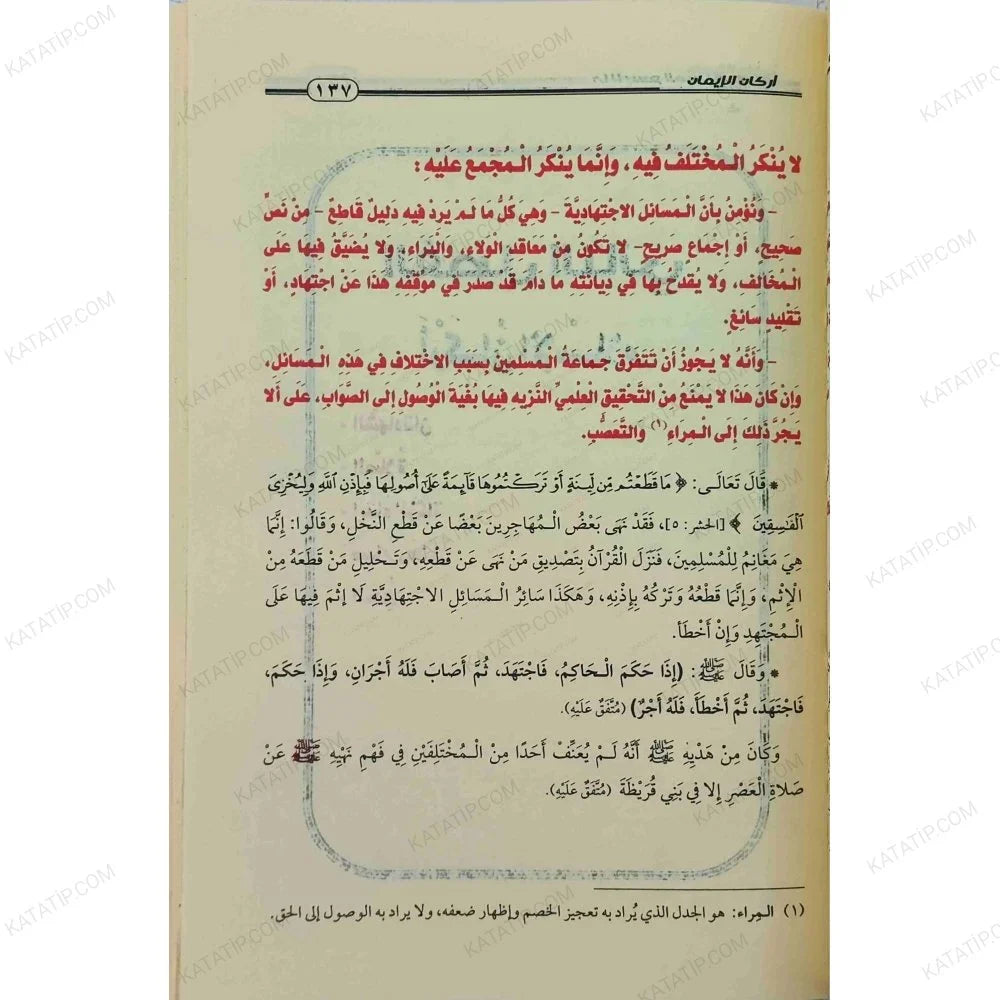 أركان الإيمان
١٣٧
لا يُنْكَرُ الْمُخْتَلَفُ فِيهِ، وَإِنَّمَا يُنْكَرُ الْمُجْمَعُ عَلَيْهِ:
- وَنُؤْمِنُ بِأَنَّ الْمَسَائِلَ الاجْتِهَادِيَّةَ - وَهِيَ كُلُّ مَا لَمْ يَرِدْ فِيهِ دَلِيلٌ قَاطِعٌ - مِنْ نَصٍّ
صَحِيحٍ، أَوْ إِجْمَاعٍ صَرِيحٍ- لا تَكُونُ مِنْ مَعَاقِدِ الْوَلاءِ، وَالْبَرَاءِ، وَلا يُضَيَّقُ فِيهَا عَلَى
الْمُخَالِفِ، وَلا يُقْدَحُ بِهَا فِي دِيَانَتِهِ مَا دَامَ قَدْ صَدَرَ فِي مَوْقِفِهِ هَذَا عَنْ اجْتِهَادٍ، أَوْ
تَقْلِيدٍ سَائِغٍ.
- وَأَنَّهُ لا يَجُوزُ أَنْ تَتَفَرَّقَ جَمَاعَةُ الْمُسْلِمِينَ بِسَبَبِ الاخْتِلافِ فِي هَذِهِ الْمَسَائِلِ،
وَإِنْ كَانَ هَذَا لا يَمْنَعُ مِنَ التَّحْقِيقِ الْعِلْمِيِّ النَّزِيهِ فِيهَا بُغْيَةَ الْوُصُولِ إِلَى الصَّوَابِ، عَلَى أَلا
يَجُرَّ ذَلِكَ إِلَى الْمِرَاءِ (١) وَالتَّعَصُّبِ.
* قَالَ تَعَالَى: ﴿ مَا قَطَعْتُم مِّن لِّينَةٍ أَوْ تَرَكْتُمُوهَا قَآئِمَةً عَلَىٰٓ أُصُولِهَا فَبِإِذْنِ ٱللَّهِ وَلِيُخْزِىَ
ٱلْفَٰسِقِينَ ﴾ [الحشر: ٥]، فَقَدْ نَهَى بَعْضُ الْمُهَاجِرِينَ بَعْضًا عَنْ قَطْعِ النَّخْلِ، وَقَالُوا: إِنَّمَا
هِيَ مَغَانِمُ لِلْمُسْلِمِينَ، فَنَزَلَ الْقُرْآنُ بِتَصْدِيقِ مَنْ نَهَى عَنْ قَطْعِهِ، وَتَحْلِيلِ مَنْ قَطَعَهُ مِنْ
الإِثْمِ، وَإِنَّمَا قَطْعُهُ وَتَرْكُهُ بِإِذْنِهِ، وَهَكَذَا سَائِرُ الْمَسَائِلِ الاجْتِهَادِيَّةِ لَا إِثْمَ فِيهَا عَلَى
الْمُجْتَهِدِ وَإِنْ أَخْطَأَ.
* وَقَالَ ﷺ: (إِذَا حَكَمَ الْحَاكِمُ، فَاجْتَهَدَ، ثُمَّ أَصَابَ فَلَهُ أَجْرَانِ، وَإِذَا حَكَمَ،
فَاجْتَهَدَ، ثُمَّ أَخْطَأَ، فَلَهُ أَجْرٌ) (مُتَّفَقٌ عَلَيْهِ).
وَكَانَ مِنْ هَدْيِهِ ﷺ أَنَّهُ لَمْ يُعَنِّفْ أَحَدًا مِنْ الْمُخْتَلِفِينَ فِي فَهْمِ نَهْيِهِ ﷺ عَنْ
صَلاةِ الْعَصْرِ إِلا فِي بَنِي قُرَيْظَةَ (مُتَّفَقٌ عَلَيْهِ).
(١) المِراء: هو الجدل الذي يُراد به تعجيز الخصم وإظهار ضعفه، ولا يراد به الوصول إلى الحق.
KATATIP.COM